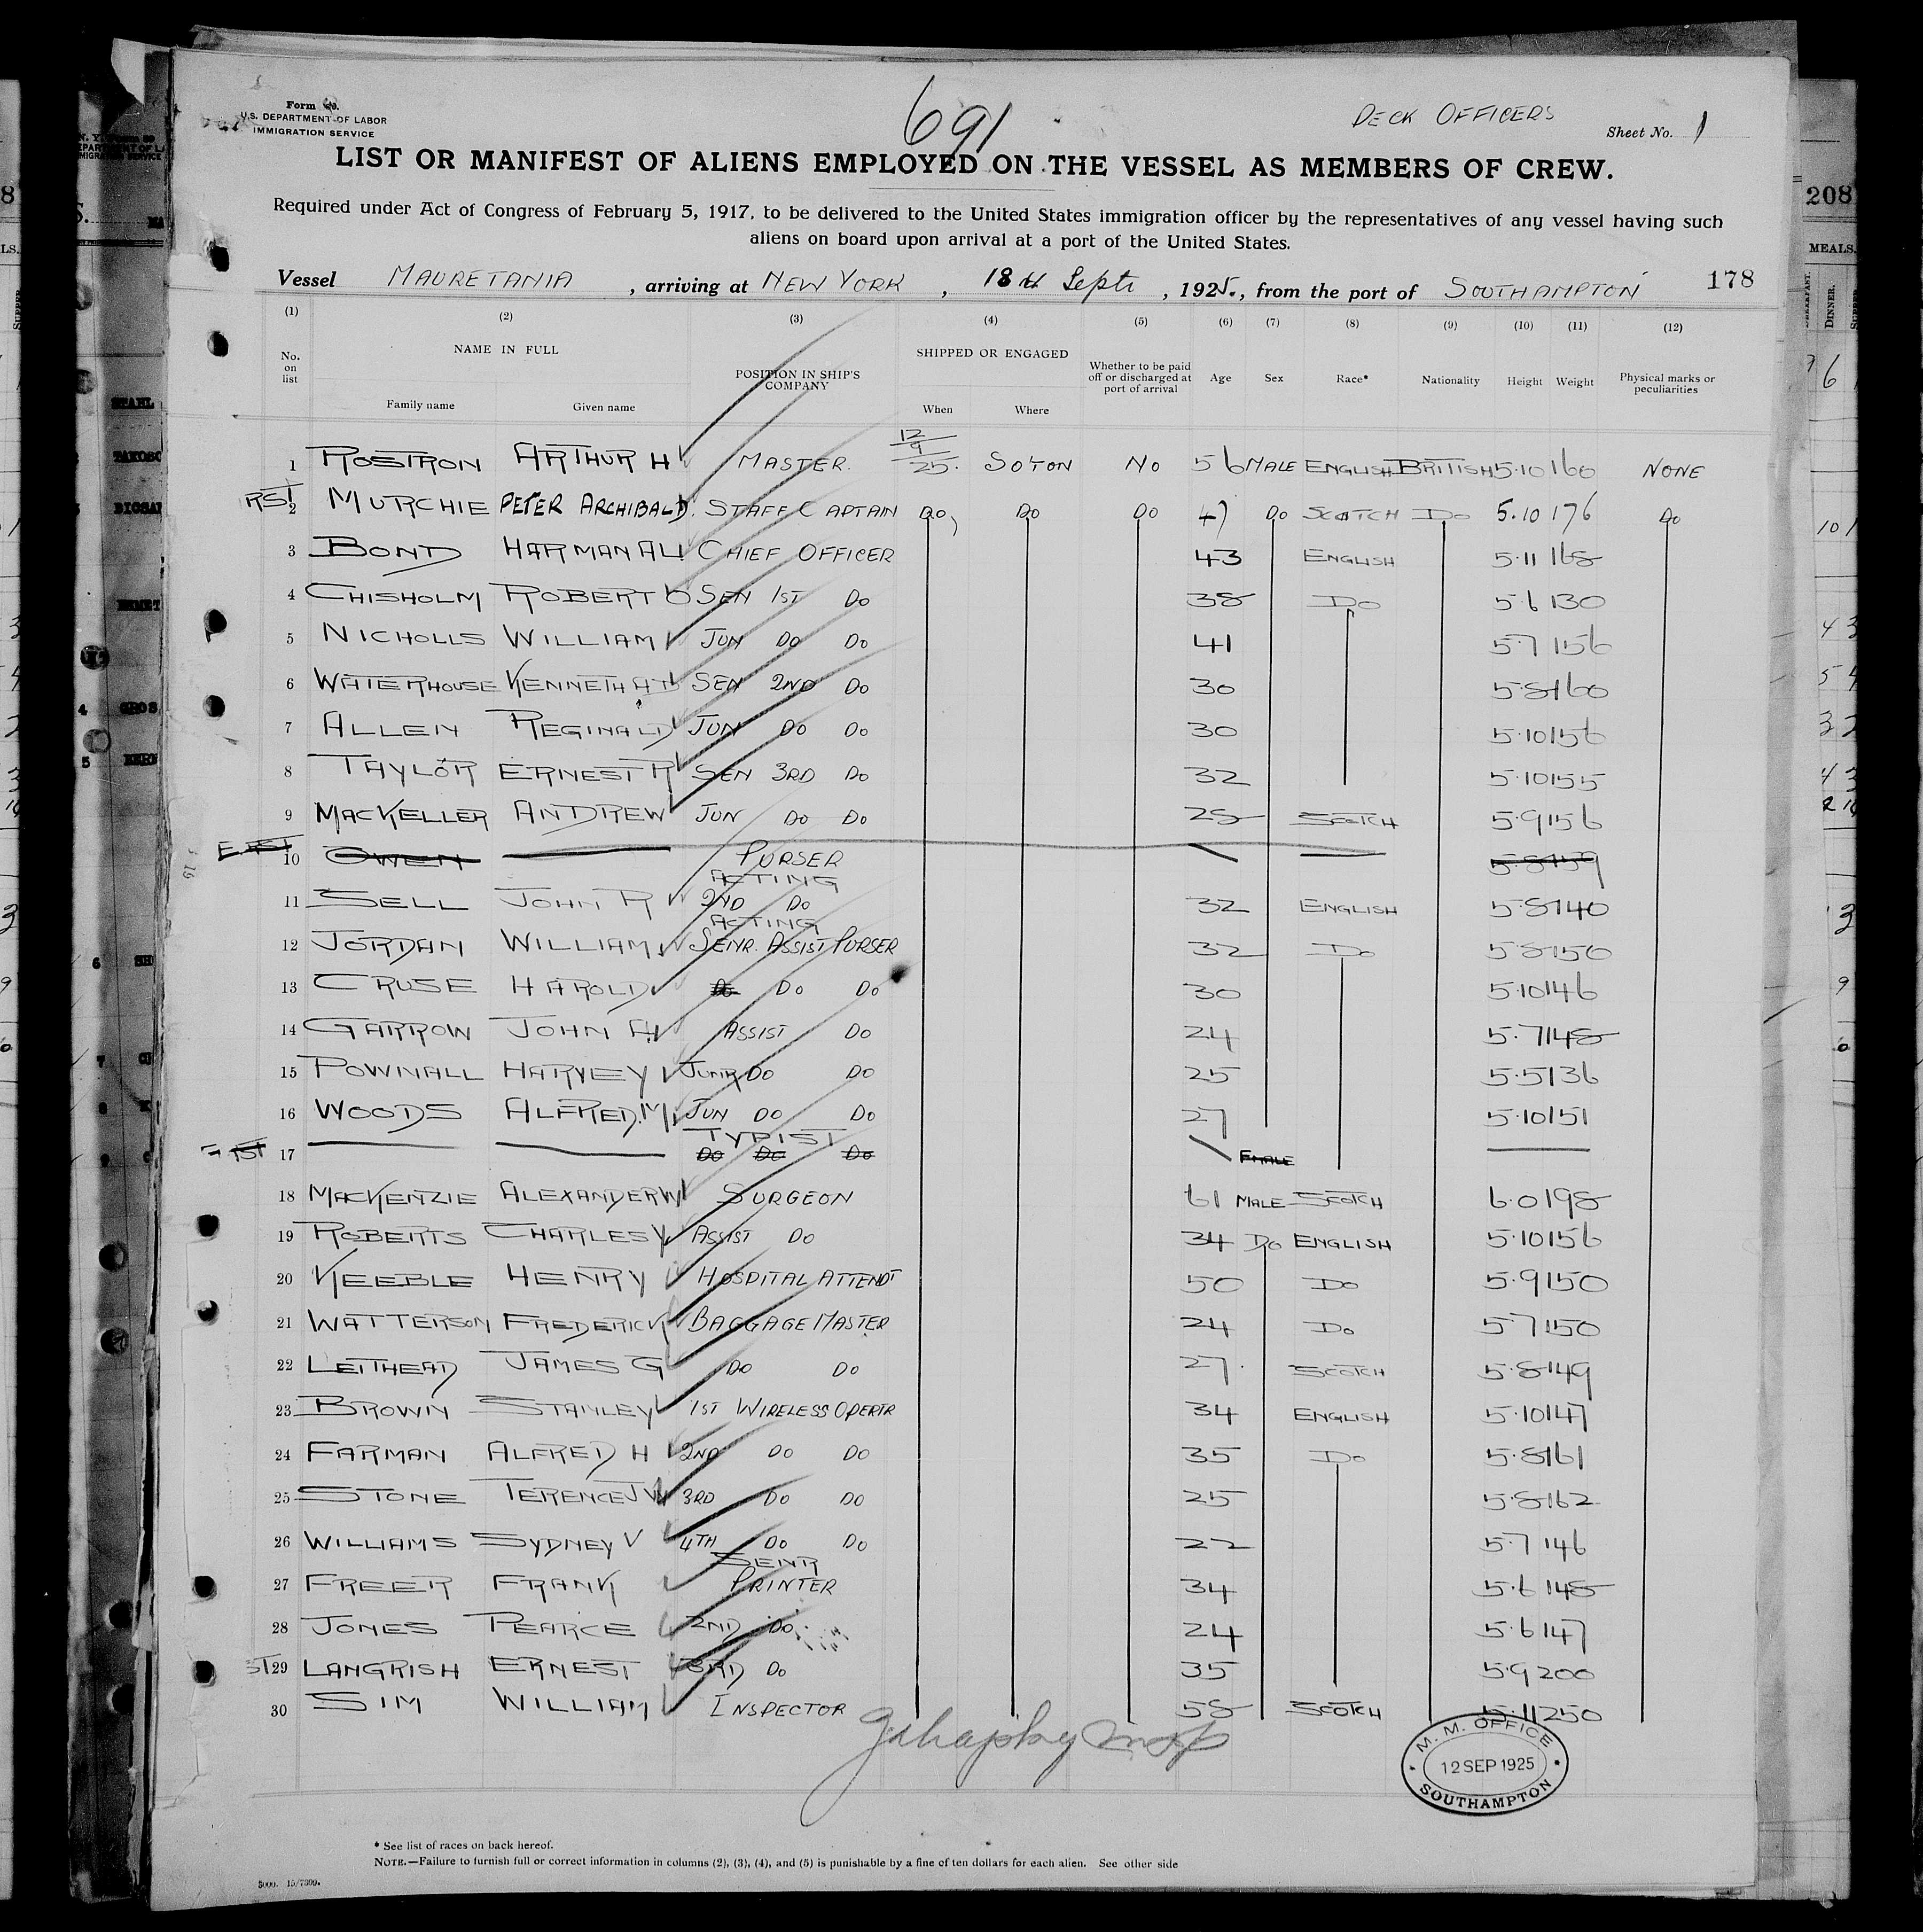 Form
U.S. DEPARTMENT OF LABOR
IMMIGRATION SERVICE
691
DECK OFFICERS
Sheet No. 1
LIST OR MANIFEST OF ALIENS EMPLOYED ON THE VESSEL AS MEMBERS OF CREW.
Required under Act of Congress of February 5, 1917, to be delivered to the United States immigration officer by the representatives of any vessel having such
aliens on board upon arrival at a port of the United States.
Vessel MAURETANIA, arriving at NEW YORK, 18th Sept, 1925., from the port of SOUTHAMPTON 178
(1) (2) (3) (4) (5) (6) (7) (8) (9) (10) (11) (12)
No. on list NAME IN FULL Family name Given name POSITION IN SHIP'S COMPANY SHIPPED OR ENGAGED When Where Whether to be paid off or discharged at port of arrival Age Sex Race* Nationality Height Weight Physical marks or peculiarities
1 ROSTRON ARTHUR H MASTER. 12/9/25. SO'TON NO 56 MALE ENGLISH BRITISH 5.10 160 NONE
2 MURCHIE PETER ARCHIBALD. STAFF CAPTAIN DO DO DO 47 DO SCOTCH DO 5.10 176 DO
3 BOND HARMAN A CHIEF OFFICER 43 ENGLISH 5.11 168
4 CHISHOLM ROBERT SEN 1ST DO 38 DO 5.6 130
5 NICHOLLS WILLIAM JUN DO DO 41 5.7 156
6 WATERHOUSE KENNETH SEN 2ND DO 30 5.8 160
7 ALLEN REGINALD JUN DO DO 30 5.10 156
8 TAYLOR ERNEST R SEN 3RD DO 32 5.10 155
9 MACKELLER ANDREW JUN DO DO 28 SCOTCH 5.9 156
10 OWEN PURSER 5.8 159
11 SELL JOHN R ACTING 2ND DO 32 ENGLISH 5.8 140
12 JORDAN WILLIAM ACTING SENR. ASSIST PURSER 32 DO 5.8 150
13 CRUSE HAROLD DO DO DO 30 5.10 146
14 GARROW JOHN A ASSIST DO 24 5.7 148
15 POWNALL HARVEY JUNR DO DO 25 5.5 136
16 WOODS ALFRED. M JUN DO DO 27 5.10 151
17 TYPIST DO DO DO FMALE
18 MACKENZIE ALEXANDER W SURGEON 61 MALE SCOTCH 6.0 198
19 ROBERTS CHARLES V ASSIST DO 34 DO ENGLISH 5.10 156
20 KEEBLE HENRY HOSPITAL ATTENDT 50 DO 5.9 150
21 WATTERSON FREDERICK BAGGAGE MASTER 24 DO 5.7 150
22 LEITHEAD JAMES G DO DO 27. SCOTCH 5.8 149
23 BROWN STANLEY 1ST WIRELESS OPERTR 34 ENGLISH 5.10 147
24 FARMAN ALFRED H 2ND DO DO 35 DO 5.8 161
25 STONE TERENCE J W 3RD DO DO 25 5.8 162
26 WILLIAMS SYDNEY V 4TH DO DO 22 5.7 146
27 FREER FRANK SENR PRINTER 34 5.6 148
28 JONES PEARCE 2ND DO 24 5.6 147
29 LANGRISH ERNEST 3RD DO 35 5.9 200
30 SIM WILLIAM INSPECTOR 58 SCOTCH 5.11 250
M. M. OFFICE
12 SEP 1925
SOUTHAMPTON
* See list of races on back hereof.
NOTE.—Failure to furnish full or correct information in columns (2), (3), (4), and (5) is punishable by a fine of ten dollars for each alien. See other side
5000. 15/7309.
208
MEALS.
DINNER.